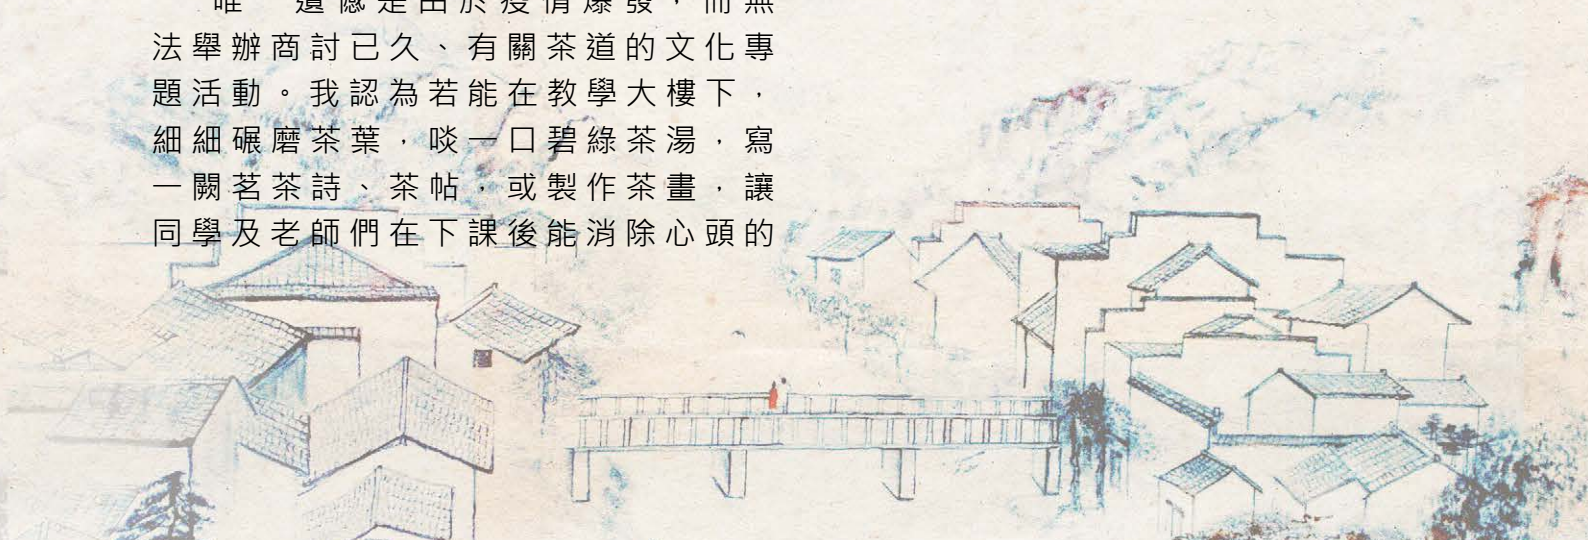 唯遺憾是由於疫情爆發，而無
法舉辦商討已久、有關茶道的文化專
題活動。我認為若能在教學大樓下，
細細碾磨茶葉，啖一口碧綠茶湯，寫
一闕茗茶詩、茶帖，或製作茶畫，讓
同學及老師們在下課後能消除心頭的